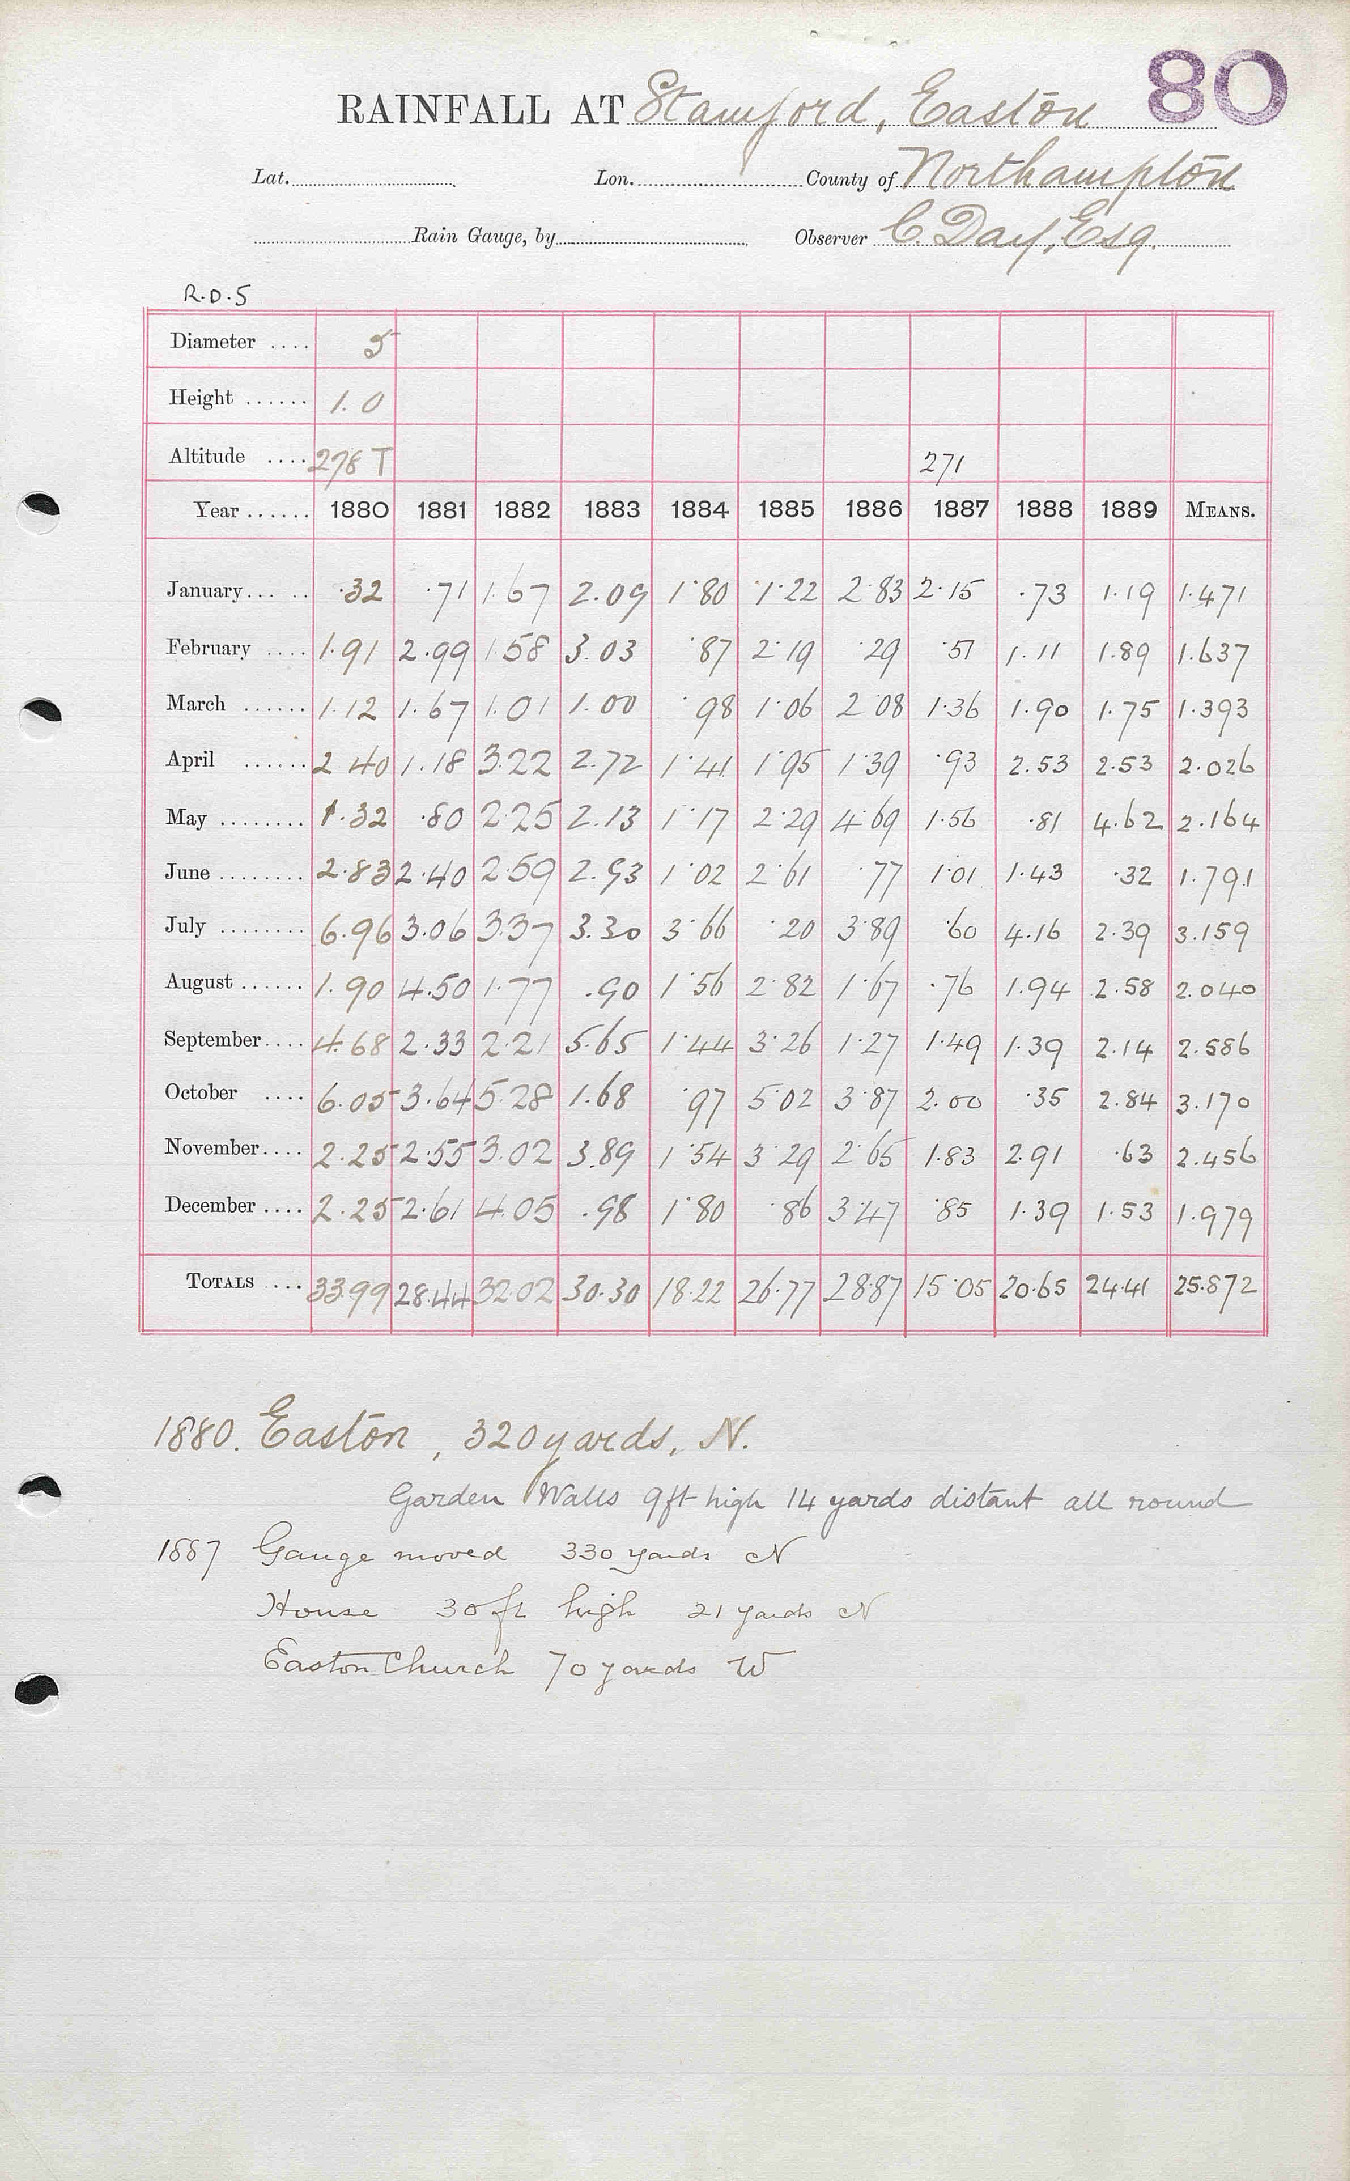 80
RAINFALL AT Stamford, Easton
Lat. Lon. County of Northampton
Rain Gauge, by Observer C. Day, Esq.
R.D.5
Diameter .... 5
Height ...... 1.0
Altitude .... 278 T 271
Year ...... 1880 1881 1882 1883 1884 1885 1886 1887 1888 1889 MEANS.
January... .. .32 .71 1.67 2.09 1.80 1.22 2.83 2.15 .73 1.19 1.471
February .... 1.91 2.99 1.58 3.03 .87 2.19 .29 .51 1.11 1.89 1.637
March ...... 1.12 1.67 1.01 1.00 .98 1.06 2.08 1.36 1.90 1.75 1.393
April ...... 2.40 1.18 3.22 2.72 1.41 1.95 1.39 .93 2.53 2.53 2.026
May ........ 1.32 .80 2.25 2.13 1.17 2.29 4.69 1.56 .81 4.62 2.164
June ........ 2.83 2.40 2.59 2.93 1.02 2.61 .77 1.01 1.43 .32 1.791
July ........ 6.96 3.06 3.37 3.30 3.66 .20 3.89 .60 4.16 2.39 3.159
August ...... 1.90 4.50 1.77 .90 1.56 2.82 1.67 .76 1.94 2.58 2.040
September.... 4.68 2.33 2.21 5.65 1.44 3.26 1.27 1.49 1.39 2.14 2.586
October .... 6.05 3.64 5.28 1.68 .97 5.02 3.87 2.00 .35 2.84 3.170
November.... 2.25 2.55 3.02 3.89 1.54 3.29 2.65 1.83 2.91 .63 2.456
December .... 2.25 2.61 4.05 .98 1.80 .86 3.47 .85 1.39 1.53 1.979
TOTALS ... 33.99 28.44 32.02 30.30 18.22 26.77 28.87 15.05 20.65 24.41 25.872
1880. Easton, 320 yards, N.
Garden Walls 9ft high 14 yards distant all round
1887 Gauge moved 330 yards N
House 30 ft high 21 yards N
Easton Church 70 yards W